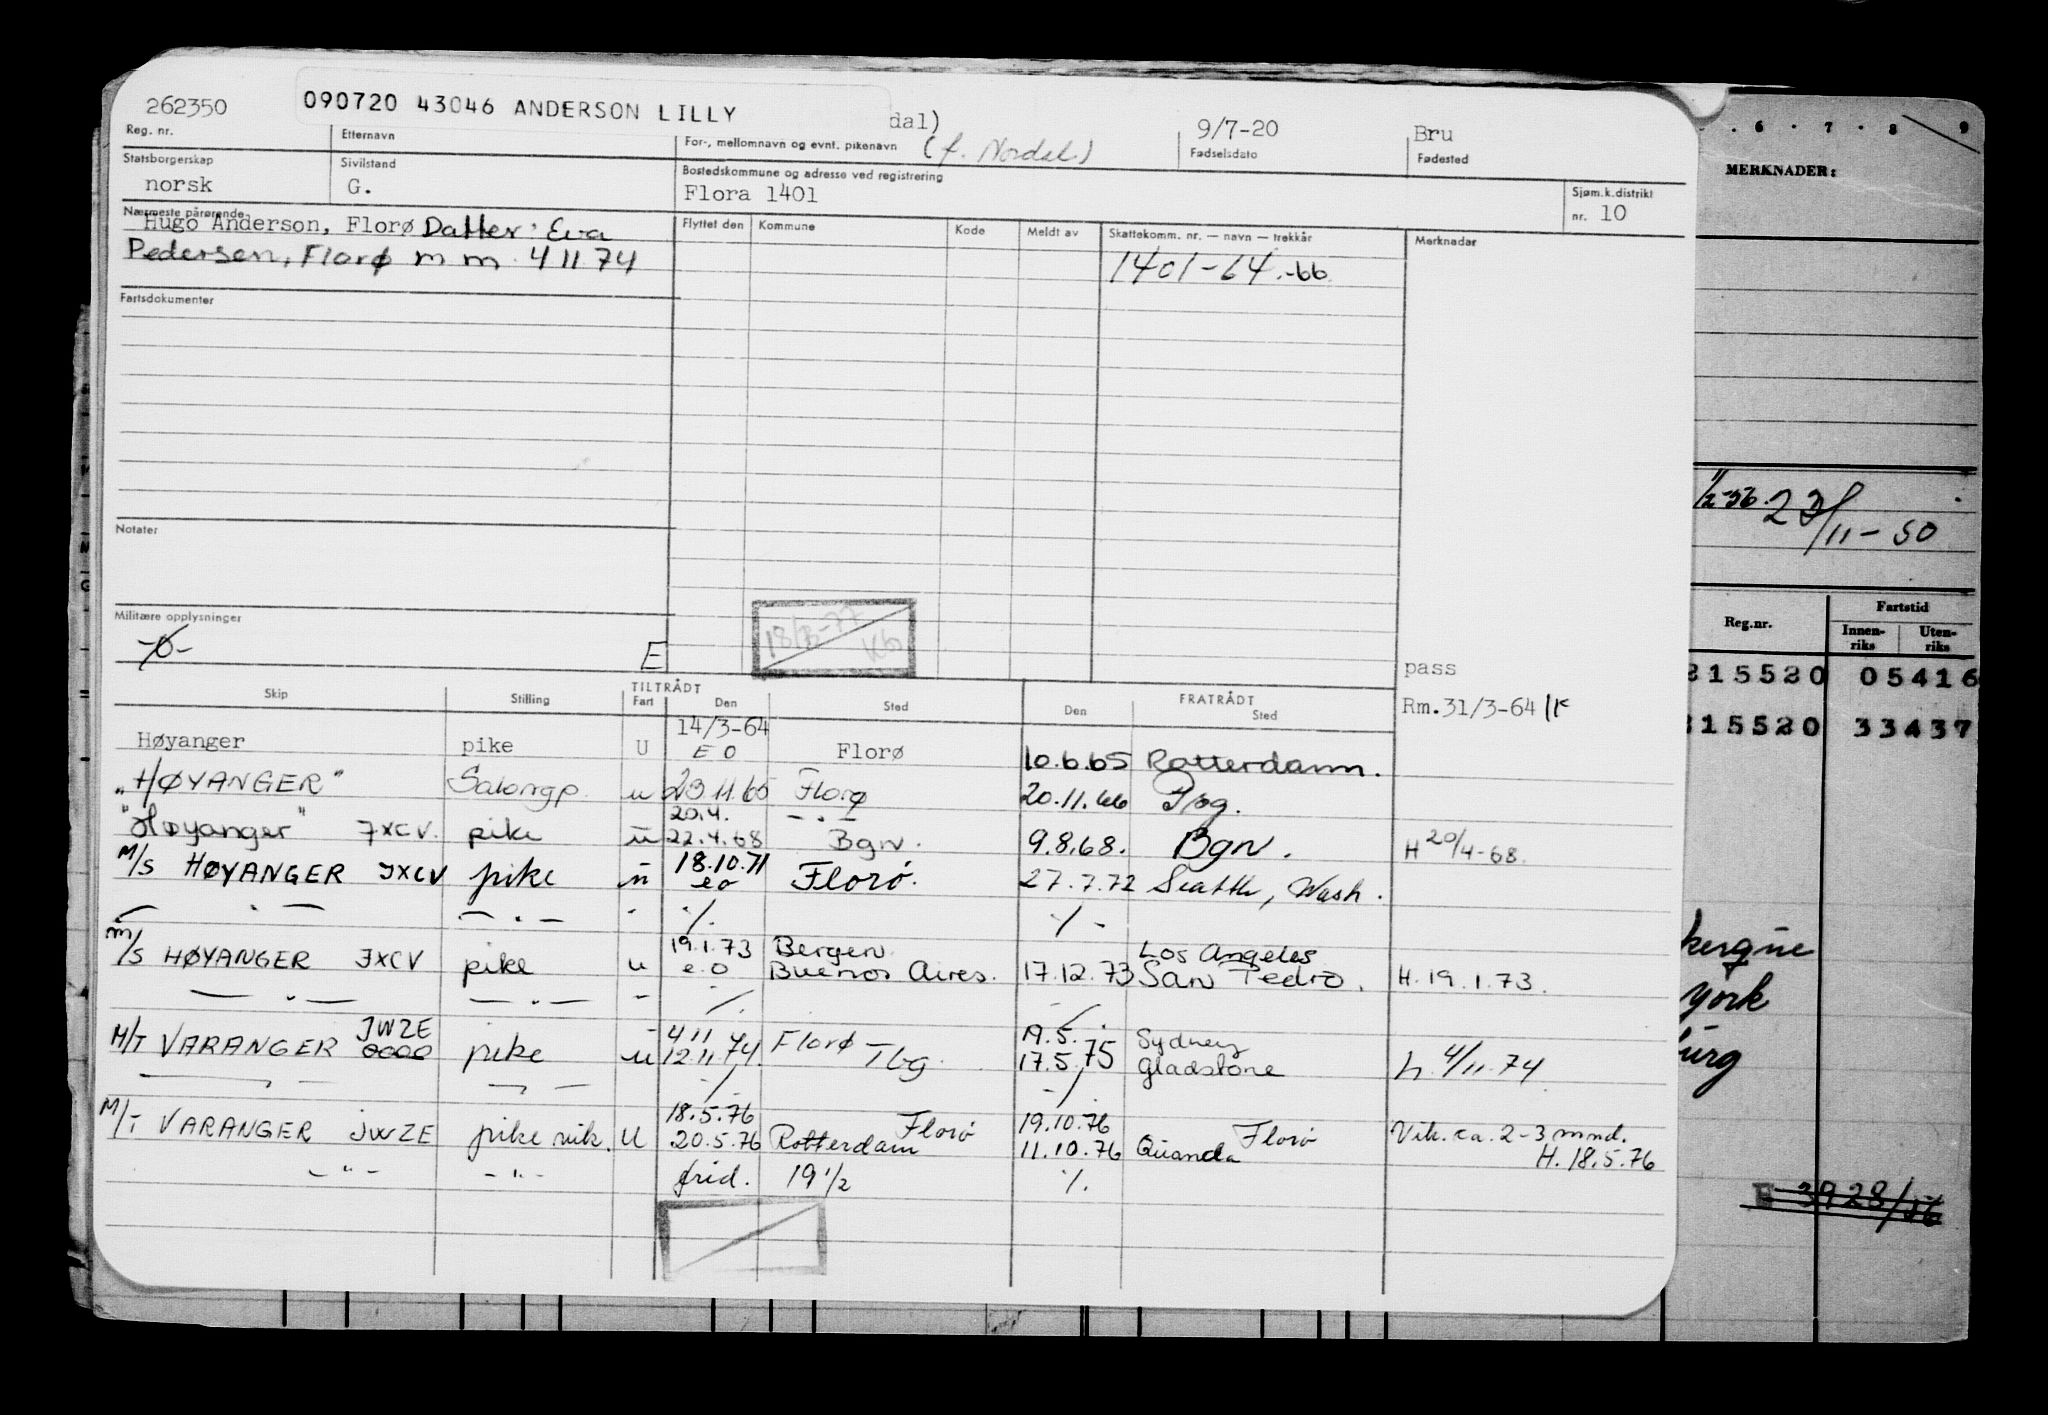 262350 090720 43046 ANDERSON LILLY dal) 9/7-20 Bru
Reg. nr. Etternavn For-, mellomnavn og evnt. pikenavn (f. Nordal) Fødselsdato Fødested
Statsborgerskap Sivilstand Bostedskommune og adresse ved registrering Sjøm.k.distrikt
norsk G. Flora 1401 nr. 10
Nærmeste pårørende Flyttet den Kommune Kode Meldt av Skattekomm. nr. — navn — trekkår Merknader
Hugo Anderson, Florø Datter: Eva
Pedersen, Florø m m 4 11 74 1401-64.-66
Fartsdokumenter
Notater
Militære opplysninger
-0- E
18/3-77 Kb
pass
TILTRÅDT FRATRÅDT
Skip Stilling Fart Den Sted Den Sted Rm.31/3-64
14/3-64
Høyanger pike U E O Florø 10.6.65 Rotterdam.
"HØYANGER" Salongp. u 23.11.65 Florø 20.11.66
20.4. - . -
"Høyanger" JXCV. pike u 22.4.68 Bgn. 9.8.68. Bgn. H 20/4-68.
18.10.71
M/S HØYANGER JXCV pike u eo Florø. 27.7.72 Seattle, Wash.
— . — — . — - ./. ./. -
19.1.73 Bergen Los Angeles
m/s HØYANGER JXCV pike u e.o Buenos Aires. 17.12.73 San Pedro. H. 19.1.73.
— . — — . — - ./. ./.
JWZE 4 11 Florø 19.5. Sydney
M/T VARANGER pike u 12.11.74. Tbg. 17.5.75 Gladstone h. 4/11.74
18.5.76 Florø 19.10.76 Florø Vik. ca. 2-3 mnd.
M/T VARANGER JWZE pike vik. U 20.5.76 Rotterdam 11.10.76 Quanda H. 18.5.76
- " - - " - frid. 19 1/2 ./.
6 . 7 . 8 . 9
MERKNADER:
1/2-56. 23/11-50
Reg.nr. Fartstid
Innen-riks Uten-riks
215520 05416
315520 33437
kerque
York
burg
E 3928/56